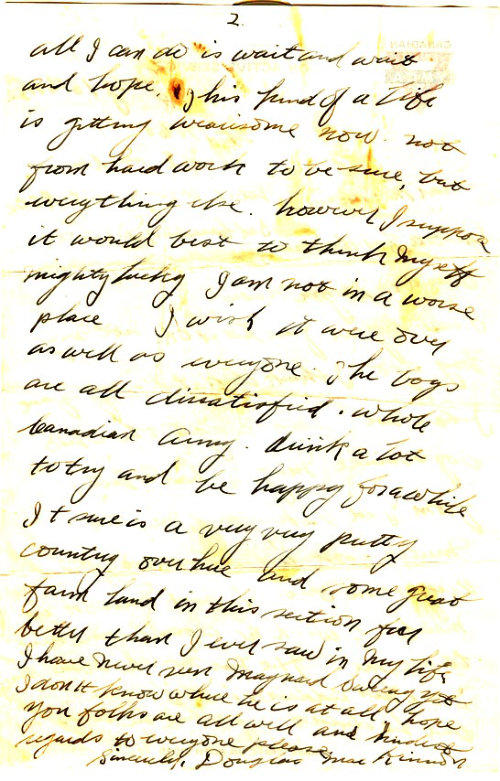 2.
all I can do is wait and wait
and hope. This kind of a life
is getting wearisome now. not
from hard work to be sure, but
everything else. however I suppose
it would best to think myself
mighty lucky I am not in a worse
place I wish it were over
as well as everyone. The boys
are all dissatisfied. whole
Canadian Army. drink a lot
to try and be happy for awhile
It sure is a very very pretty
country over here and some great
farm land in this section far
better than I ever saw in my life
I have never seen Maynard yet
I don't know where he is at all hope
you folks are all well and kindest
regards to everyone please
Sincerely, Douglas MacKinnon